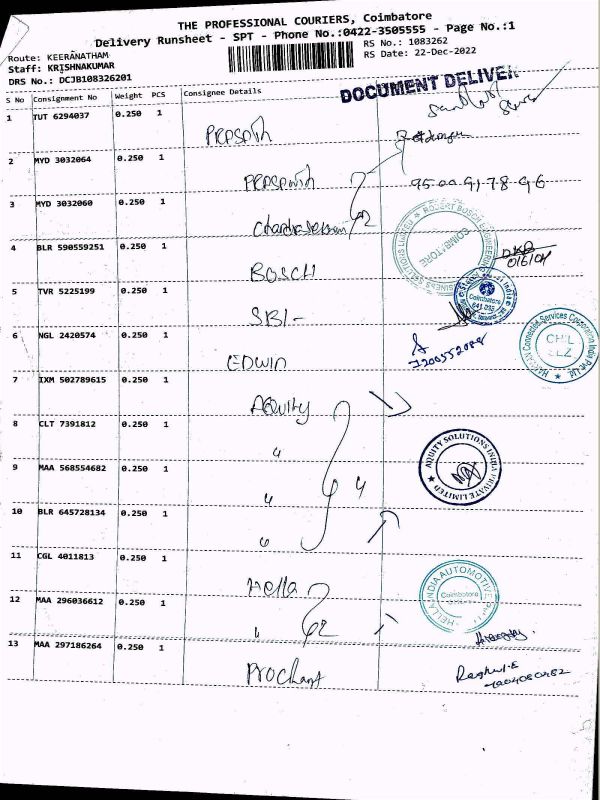 THE PROFESSIONAL COURIERS, Coimbatore
Delivery Runsheet - SPT - Phone No.:0422-3505555 - Page No.:1
Route: KEERANATHAM
RS No.: 1083262
Staff: KRISHNAKUMAR
RS Date: 22-Dec-2022
DRS No.: DCJB108326201
DOCUMENT DELIVER
S No Consignment No Weight PCS Consignee Details
1 TUT 6294037 0.250 1
Prasath
2 MYD 3032064 0.250 1
Prasanth
95 00 91 78 96
3 MYD 3032060 0.250 1
Chandrasekaran 2
ROBERT BOSCH ENGINEERING
BUSINESS SOLUTIONS LIMITED
COIMBATORE
4 BLR 590559251 0.250 1
BOSCH
5 TVR 5225199 0.250 1
SBI-
Coimbatore
641 035
6 NGL 2420574 0.250 1
EDWIN
Connected Services Corporation India Pvt Ltd.
7 IXM 502789615 0.250 1
AQuity
8 CLT 7391812 0.250 1
"
AQUITY SOLUTIONS INDIA PRIVATE LIMITED
9 MAA 568554682 0.250 1
" 4
10 BLR 645728134 0.250 1
"
11 CGL 4011813 0.250 1
Hella
HELLA INDIA AUTOMOTIVE
Coimbatore
12 MAA 296036612 0.250 1
" 2
13 MAA 297186264 0.250 1